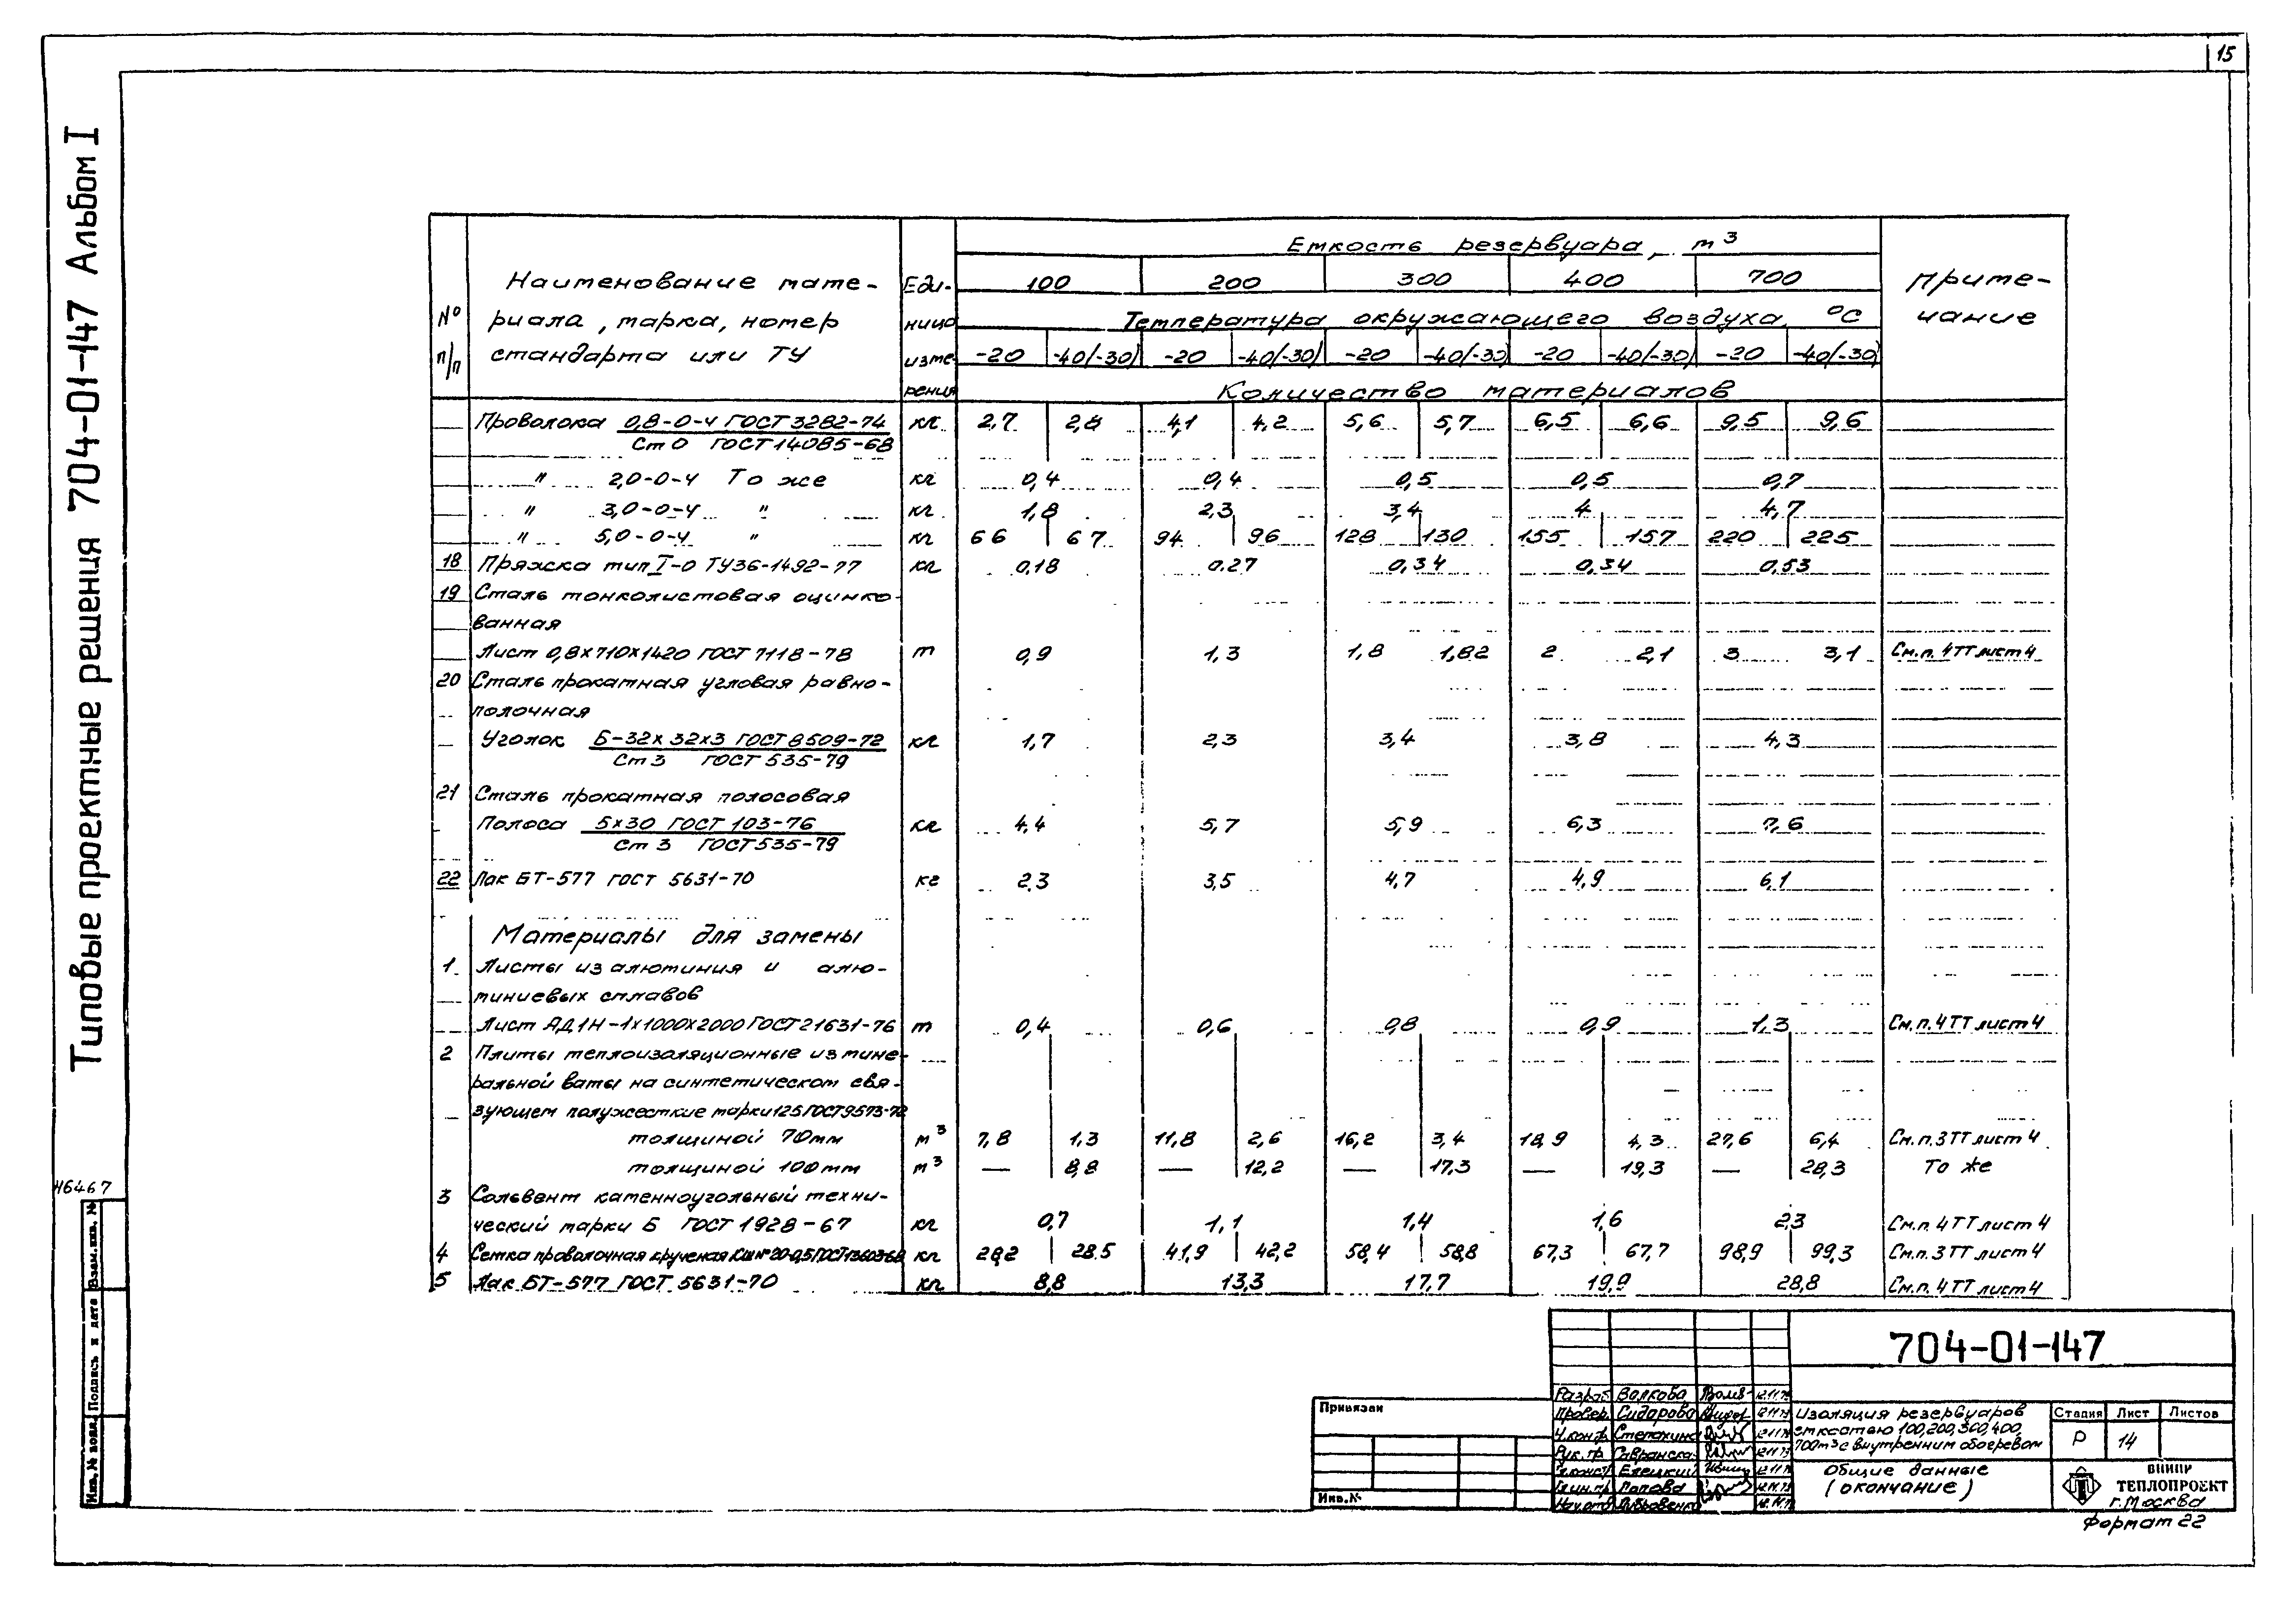 15
Типовые проектные решения 704-01-147 Альбом I
№ п/п
Наименование мате-
риала, марка, номер
стандарта или ТУ
Еди-
ница
изме-
рения
Емкость резервуара, м³
100 200 300 400 700
Температура окружающего воздуха, °С
-20 -40(-30) -20 -40(-30) -20 -40(-30) -20 -40(-30) -20 -40(-30)
Количество материалов
Приме-
чание
Проволока 0,8-0-Ч ГОСТ 3282-74 кг 2,7 2,8 4,1 4,2 5,6 5,7 6,5 6,6 9,5 9,6
Ст0 ГОСТ 14085-68
" 2,0-0-Ч То же кг 0,4 0,4 0,5 0,5 0,7
" 3,0-0-Ч " кг 1,8 2,3 3,4 4 4,7
" 5,0-0-Ч " кг 66 67 94 96 128 130 155 157 220 225
18 Пряжка тип I-0 ТУ36-1492-77 кг 0,18 0,27 0,34 0,34 0,53
19 Сталь тонколистовая оцинко-
ванная
Лист 0,8х710х1420 ГОСТ 7118-78 т 0,9 1,3 1,8 1,82 2 2,1 3 3,1 См.п. 4ТТ лист 4
20 Сталь прокатная угловая равно-
полочная
Уголок Б-32х32х3 ГОСТ 8509-72 кг 1,7 2,3 3,4 3,8 4,3
Ст 3 ГОСТ 535-79
21 Сталь прокатная полосовая
Полоса 5х30 ГОСТ 103-76 кг 4,4 5,7 5,9 6,3 7,6
Ст 3 ГОСТ 535-79
22 Лак БТ-577 ГОСТ 5631-70 кг 2,3 3,5 4,7 4,9 6,1
Материалы для замены
1. Листы из алюминия и алю-
миниевых сплавов
Лист АД1Н-1х1000х2000 ГОСТ 21631-76 т 0,4 0,6 0,8 0,9 1,3 См.п. 4ТТ лист 4
2 Плиты теплоизоляционные из мине-
ральной ваты на синтетическом свя-
зующем полужесткие марки 125 ГОСТ 9573-72
толщиной 70мм м³ 7,8 1,3 11,8 2,6 16,2 3,4 18,9 4,3 27,6 6,4 См.п. 3ТТ лист 4
толщиной 100мм м³ — 8,8 — 12,2 — 17,3 — 19,3 — 28,3 То же
3 Сольвент каменноугольный техни-
ческий марки Б ГОСТ 1928-67 кг 0,7 1,1 1,4 1,6 2,3 См.п. 4ТТ лист 4
4 Сетка проволочная крученая КШ №20-0,5 ГОСТ 13603-68 кг 28,2 28.5 41,9 42,2 58,4 58,8 67,3 67,7 98,9 99,3 См.п. 3ТТ лист 4
5 Лак БТ-577 ГОСТ 5631-70 кг 8,8 13,3 17,7 19,9 28,8 См.п. 4ТТ лист 4
Н6467
Взам. инв. №
Подпись и дата
Инв. № подл.
Привязан
Инв. №
Разраб. Волкова 12.11.79
Провер. Сидорова 12.11.79
Н.контр. Степанина 12.11.79
Рук. гр. Савранска 12.11.79
Гл.конст. Елецкий 12.11.79
Гл.ин.пр. Попова 12.11.79
Нач.отд. Дубровенко 12.11.79
704-01-147
Изоляция резервуаров
емкостью 100, 200, 300, 400,
700м³ с внутренним обогревом
Стадия Лист Листов
Р 14
Общие данные
(окончание)
ВНИПИ
ТЕПЛОПРОЕКТ
г. Москва
Формат 22